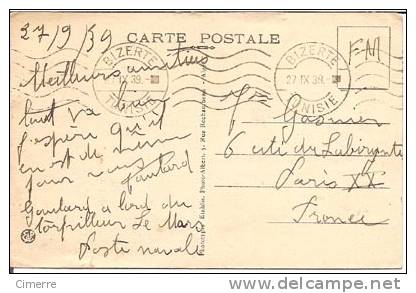 27/9/39
CARTE POSTALE
BIZERTE
27 IX 39
TUNISIE
BIZERTE
27 IX 39
TUNISIE
F.M.
Meilleurs amitiés
tout va bien
j'espère qu'il
en est de même
pour vous
Goulard
Goulard a bord du
torpilleur Le Mars
Poste navale
Gasnier
6 cité du Labirynte
Paris XX
France
Cimerre
www.delcampe.net